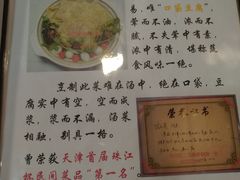 易,难"口袋豆腐",
荤而不油,浓而不
腻,不失荤中有素,
浓中有清,堪称蔬
食风味一绝。
烹制此菜难在汤中,绝在口袋,豆
腐实中有空,空而成
浆,浆而不漏,汤菜
相融,别具一格。
曾荣获天津首届珠江
杯民间菜品"第一名"
荣誉证书